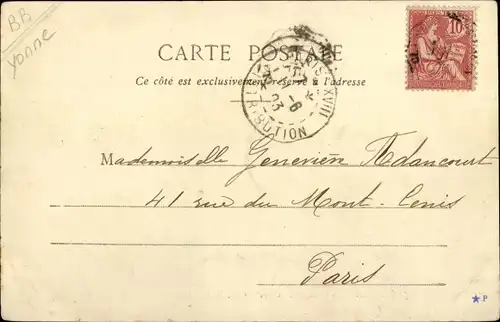 BB
Yonne
CARTE POSTALE
Ce côté est exclusivement réservé à l'adresse
10
PARIS XVIII
6
03
DISTRIBUTION
Mademoiselle Geneviève Adancourt
41 rue du Mont-Cenis
Paris
P